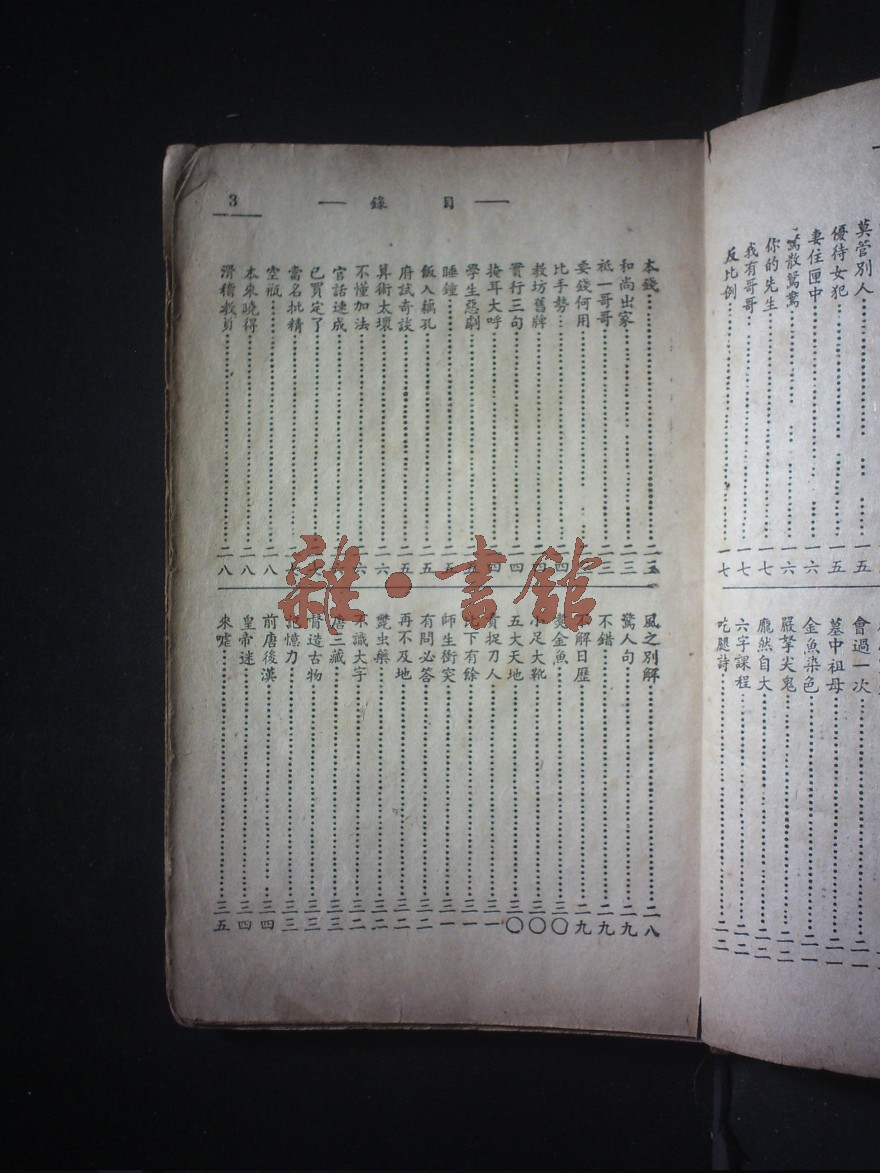 3 — 目錄 —
本錢……二三
和尚出家……二三
祗一哥哥……二三
要錢何用
比手勢……四
教坊舊牌……四
實行三句……二四
掩耳大呼……四
學生惡劇……五
睡鐘……五
飯入藕孔……五
府試奇談……二五
算術太壞……二六
不懂加法……六
官話速成
已買定了
當名批精
空瓶……二八
本來曉得……二八
滑稽教員……二八
風之別解……二八
驚人句……二九
不錯……二九
不解日歷……二九
金魚……三〇
小足大靴……三〇
五大天地……三〇
捉刀人……三一
比下有餘……三一
師生衝突……三一
有問必答……三二
再不及地……三二
斃虫藥……三二
不識大字……三二
唐三藏……三三
造古物……三三
記憶力……三三
前唐後漢……三四
皇帝迷……三四
來嘘……三五
莫管別人……一五
優待女犯……一五
妻住匣中……一六
罵散鴛鴦……一六
你的先生……一七
我有哥哥……一七
反比例……一七
會過一次……二一
墓中祖母……二一
金魚染色……二一
嚴拏犬鬼……二二
龐然自大……二二
六字課程……二二
吃腿詩……二二
雜·書館